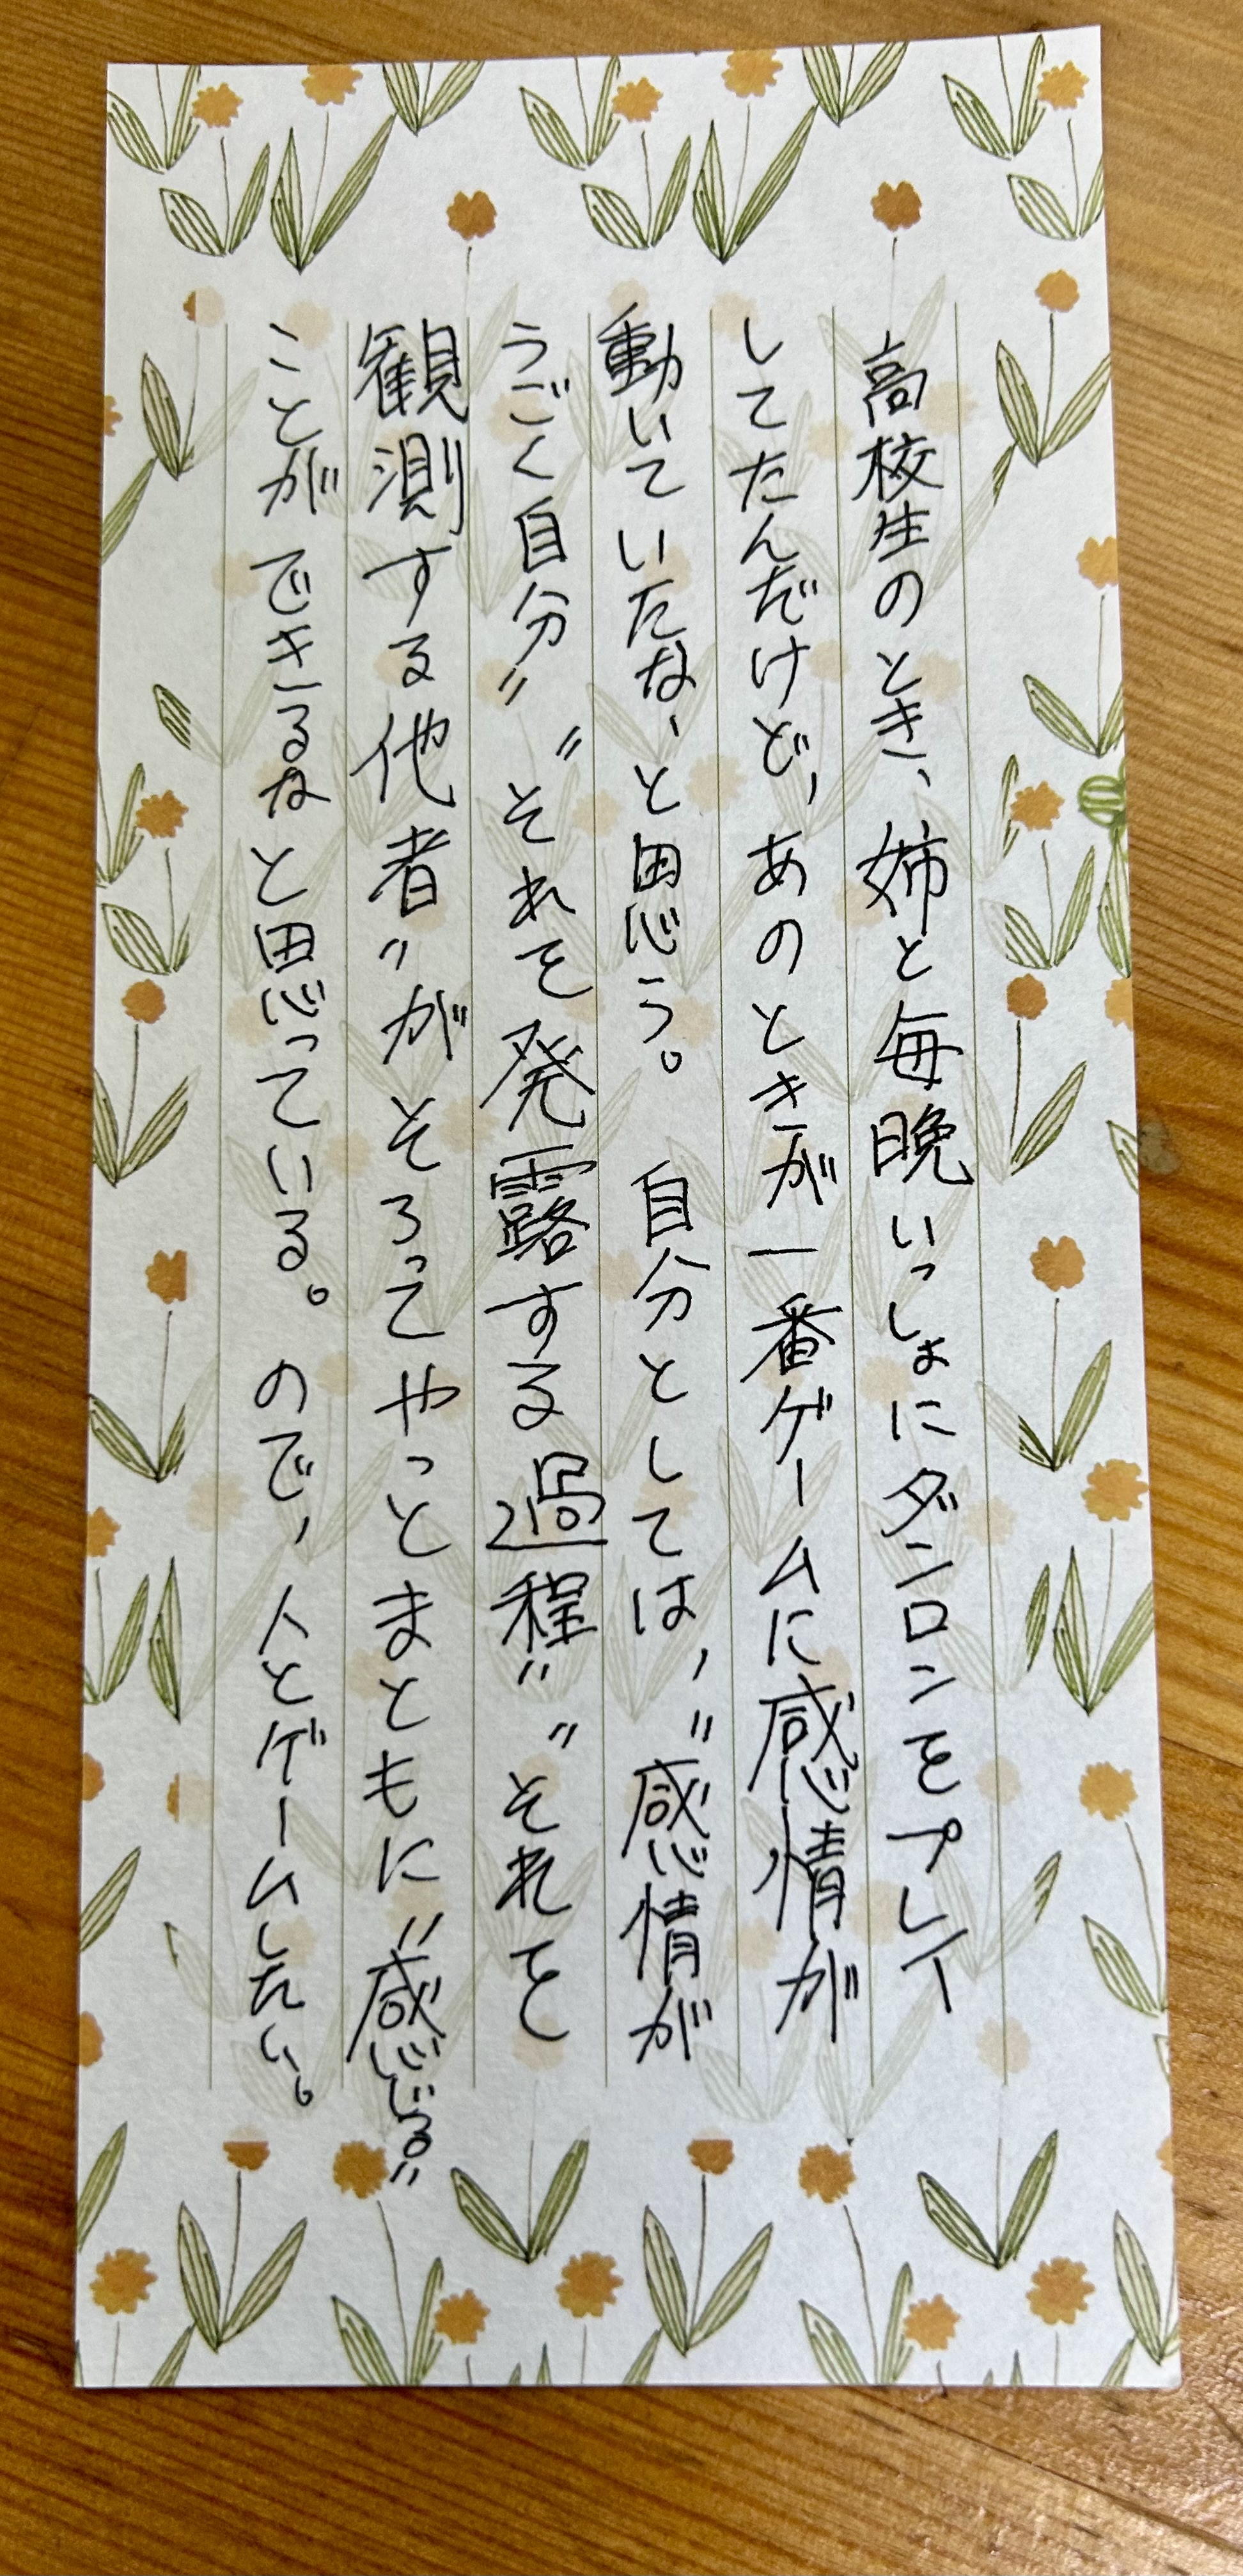 高校生のとき、姉と毎晩いっしょにダンロンをプレイ
してたんだけど、あのときが一番ゲームに感情が
動いていたな、と思う。 自分としては、"感情が
うごく自分" "それを発露する過程" "それを
観測する他者"がそろってやっとまともに"感じる"
ことができるなと思っている。 ので、人とゲームしたい。